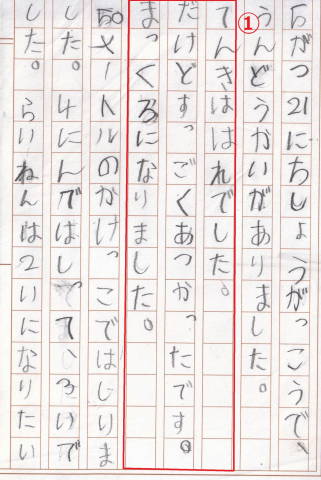 5がつ21にちしょうがっこうで、
①
うんどうかいがありました。
てんきははれでした。
だけどすっごくあつかったです。
まっくろになりました。
50メートルのかけっこではしりま
した。4にんではしって、3いで
した。らいねんは2いになりたい